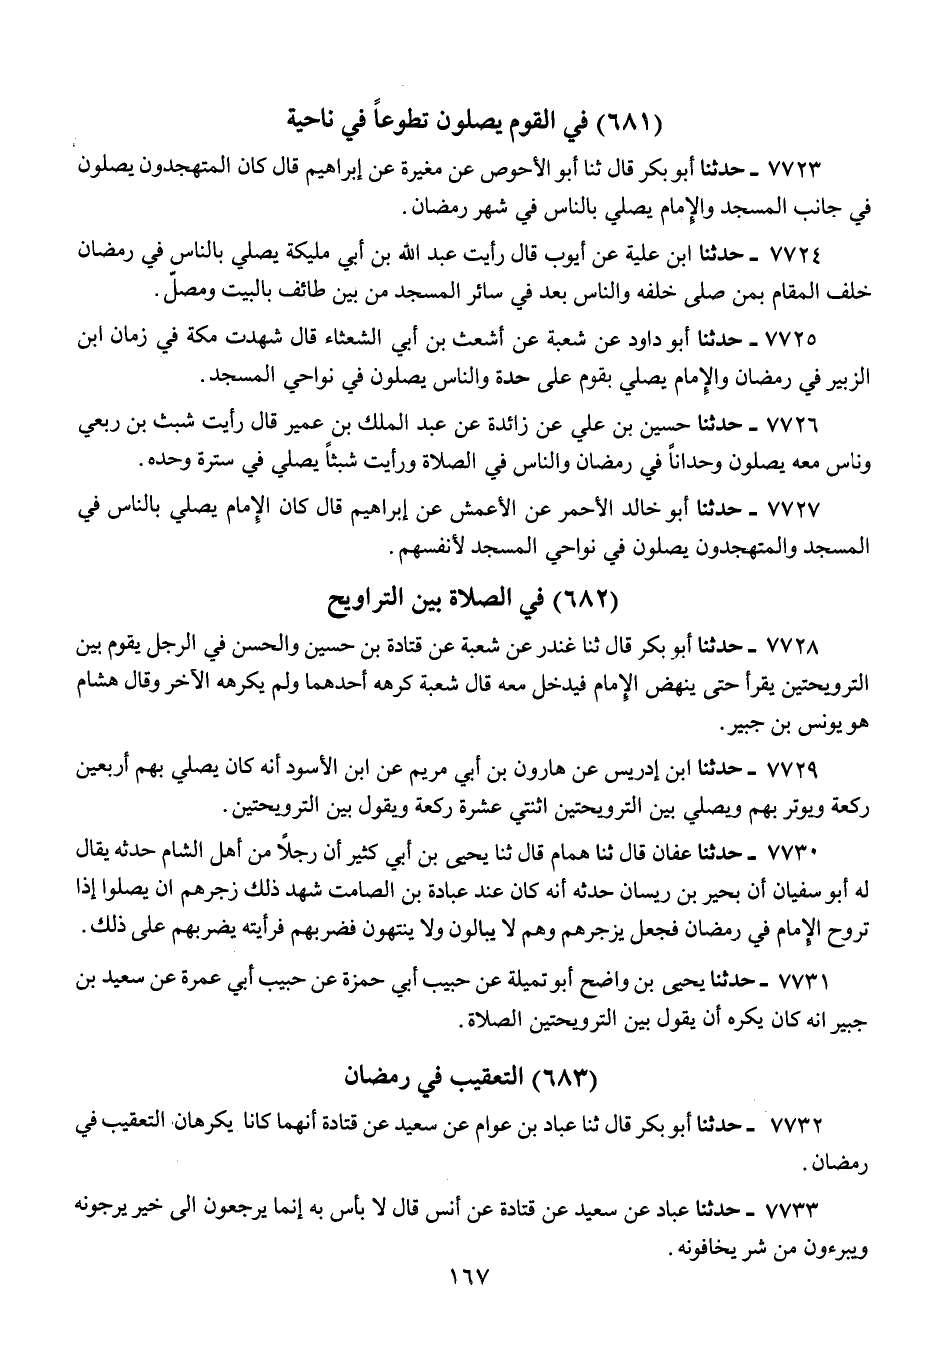 (٦٨١) في القوم يصلون تطوعاً في ناحية
٧٧٢٣ ـ حدثنا أبو بكر قال ثنا أبو الأحوص عن مغيرة عن إبراهيم قال كان المتهجدون يصلون
في جانب المسجد والإمام يصلي بالناس في شهر رمضان .
٧٧٢٤ ـ حدثنا ابن علية عن أيوب قال رأيت عبد الله بن أبي مليكة يصلي بالناس في رمضان
خلف المقام بمن صلى خلفه والناس بعد في سائر المسجد من بين طائف بالبيت ومصلّ .
٧٧٢٥ ـ حدثنا أبو داود عن شعبة عن أشعث بن أبي الشعثاء قال شهدت مكة في زمان ابن
الزبير في رمضان والإمام يصلي بقوم على حدة والناس يصلون في نواحي المسجد .
٧٧٢٦ ـ حدثنا حسين بن علي عن زائدة عن عبد الملك بن عمير قال رأيت شبث بن ربعي
وناس معه يصلون وحداناً في رمضان والناس في الصلاة ورأيت شبثاً يصلي في سترة وحده .
٧٧٢٧ ـ حدثنا أبو خالد الأحمر عن الأعمش عن إبراهيم قال كان الإمام يصلي بالناس في
المسجد والمتهجدون يصلون في نواحي المسجد لأنفسهم .
(٦٨٢) في الصلاة بين التراويح
٧٧٢٨ ـ حدثنا أبو بكر قال ثنا غندر عن شعبة عن قتادة بن حسين والحسن في الرجل يقوم بين
الترويحتين يقرأ حتى ينهض الإمام فيدخل معه قال شعبة كرهه أحدهما ولم يكرهه الآخر وقال هشام
هو يونس بن جبير .
٧٧٢٩ ـ حدثنا ابن إدريس عن هارون بن أبي مريم عن ابن الأسود أنه كان يصلي بهم أربعين
ركعة ويوتر بهم ويصلي بين الترويحتين اثنتي عشرة ركعة ويقول بين الترويحتين .
٧٧٣٠ ـ حدثنا عفان قال ثنا همام قال ثنا يحيى بن أبي كثير أن رجلاً من أهل الشام حدثه يقال
له أبو سفيان أن بحير بن ريسان حدثه أنه كان عند عبادة بن الصامت شهد ذلك زجرهم ان يصلوا إذا
تروح الإمام في رمضان فجعل يزجرهم وهم لا يبالون ولا ينتهون فضربهم فرأيته يضربهم على ذلك .
٧٧٣١ ـ حدثنا يحيى بن واضح أبو تميلة عن حبيب أبي حمزة عن حبيب أبي عمرة عن سعيد بن
جبير انه كان يكره أن يقول بين الترويحتين الصلاة .
(٦٨٣) التعقيب في رمضان
٧٧٣٢ ـ حدثنا أبو بكر قال ثنا عباد بن عوام عن سعيد عن قتادة أنهما كانا يكرهان التعقيب في
رمضان .
٧٧٣٣ ـ حدثنا عباد عن سعيد عن قتادة عن أنس قال لا بأس به إنما يرجعون الى خير يرجونه
ويبرءون من شر يخافونه .
١٦٧